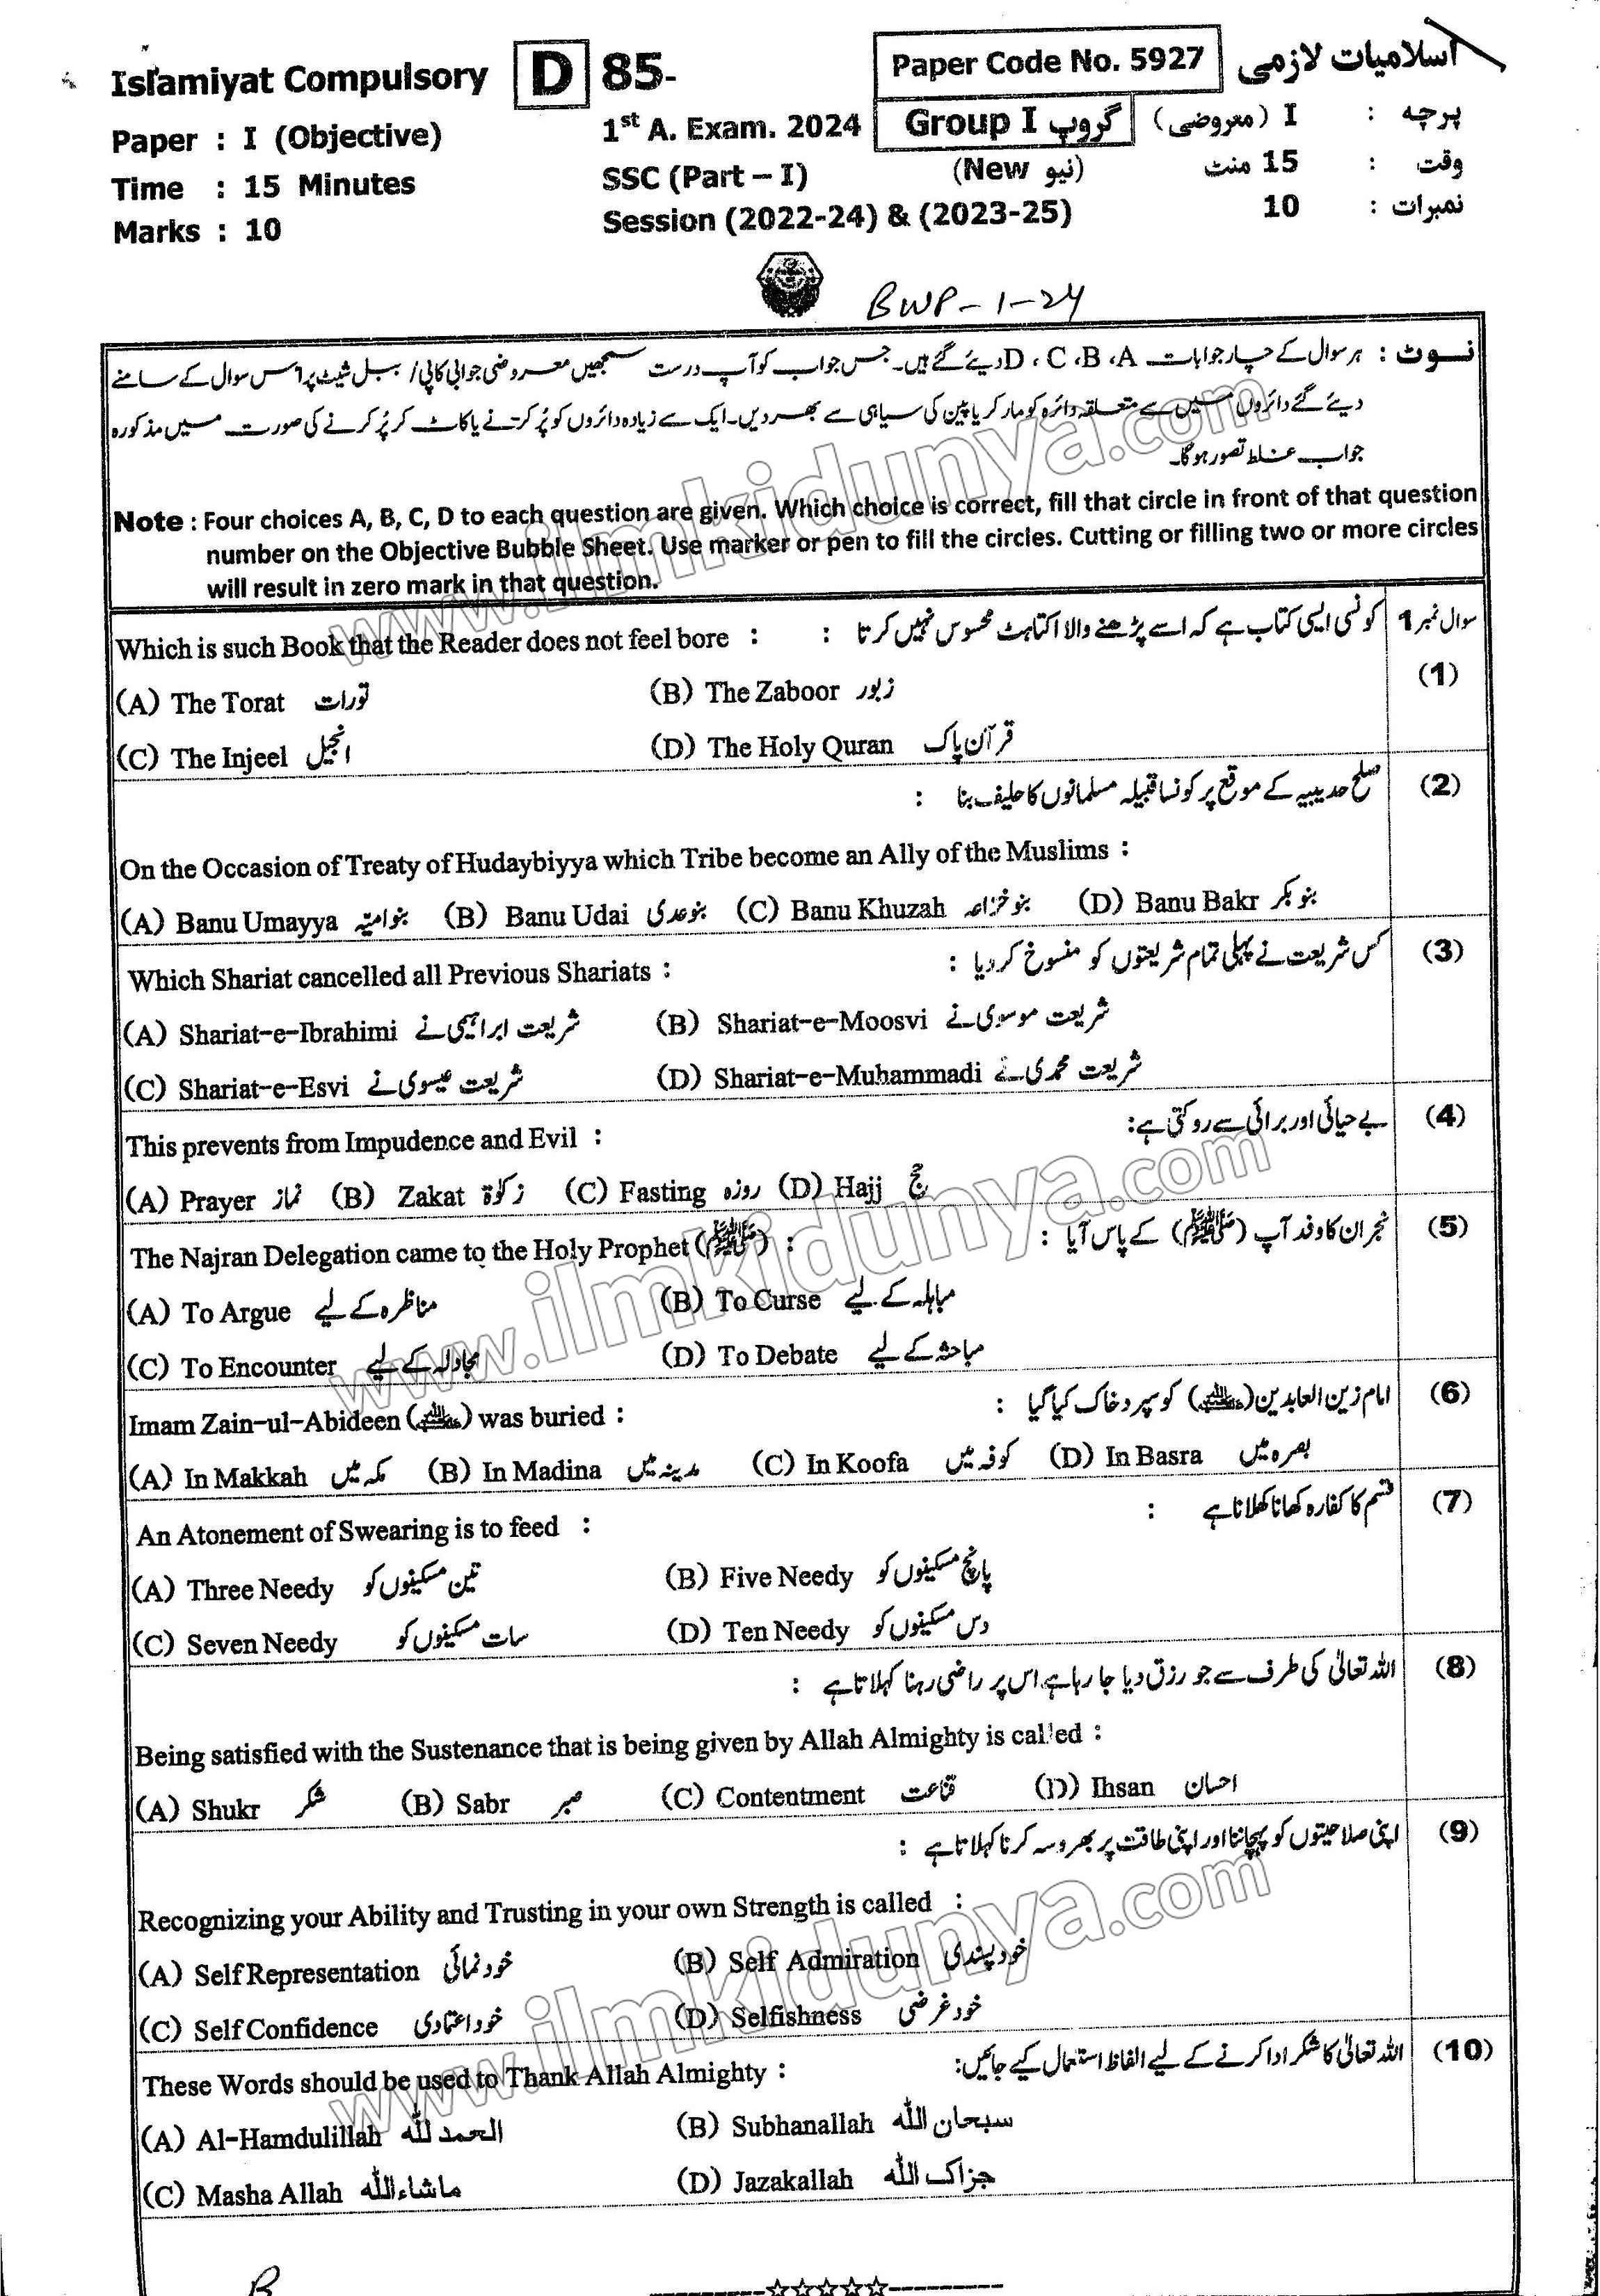 Islamiyat Compulsory D 85- Paper Code No. 5927 اسلامیات لازمی
Paper : I (Objective) 1st A. Exam. 2024 Group I گروپ پرچہ : I (معروضی)
Time : 15 Minutes SSC (Part – I) (New نیو) وقت : 15 منٹ
Marks : 10 Session (2022-24) & (2023-25) نمبرات : 10
BWP-1-24
نوٹ : ہر سوال کے چار جوابات D ، C ،B ،A دیئے گئے ہیں۔ جس جواب کو آپ درست سمجھیں معروضی جوابی کاپی/ ببل شیٹ پر اس سوال کے سامنے
دیئے گئے دائروں میں سے متعلقہ دائرہ کو مارکر یا پین کی سیاہی سے بھر دیں۔ ایک سے زیادہ دائروں کو پُر کرنے یا کاٹ کر پُر کرنے کی صورت میں مذکورہ
جواب غلط تصور ہوگا۔
Note : Four choices A, B, C, D to each question are given. Which choice is correct, fill that circle in front of that question
number on the Objective Bubble Sheet. Use marker or pen to fill the circles. Cutting or filling two or more circles
will result in zero mark in that question.
سوال نمبر 1 کونسی ایسی کتاب ہے کہ اسے پڑھنے والا اکتاہٹ محسوس نہیں کرتا :
Which is such Book that the Reader does not feel bore : (1)
(A) The Torat تورات (B) The Zaboor زبور
(C) The Injeel انجیل (D) The Holy Quran قرآن پاک
(2) صلح حدیبیہ کے موقع پر کونسا قبیلہ مسلمانوں کا حلیف بنا :
On the Occasion of Treaty of Hudaybiyya which Tribe become an Ally of the Muslims :
(A) Banu Umayya بنو امیّہ (B) Banu Udai بنو عدی (C) Banu Khuzah بنو خزاعہ (D) Banu Bakr بنو بکر
(3) کس شریعت نے پہلی تمام شریعتوں کو منسوخ کر دیا :
Which Shariat cancelled all Previous Shariats :
(A) Shariat-e-Ibrahimi شریعت ابراہیمی نے (B) Shariat-e-Moosvi شریعت موسوی نے
(C) Shariat-e-Esvi شریعت عیسوی نے (D) Shariat-e-Muhammadi شریعت محمدی نے
(4) بے حیائی اور برائی سے روکتی ہے:
This prevents from Impudence and Evil :
(A) Prayer نماز (B) Zakat زکوٰۃ (C) Fasting روزہ (D) Hajj حج
(5) نجران کا وفد آپ (ﷺ) کے پاس آیا :
The Najran Delegation came to the Holy Prophet (ﷺ) :
(A) To Argue مناظرہ کے لیے (B) To Curse مباہلہ کے لیے
(C) To Encounter مجادلہ کے لیے (D) To Debate مباحثہ کے لیے
(6) امام زین العابدین () کو سپرد خاک کیا گیا :
Imam Zain-ul-Abideen () was buried :
(A) In Makkah مکہ میں (B) In Madina مدینہ میں (C) In Koofa کوفہ میں (D) In Basra بصرہ میں
(7) قسم کا کفارہ کھانا کھلانا ہے :
An Atonement of Swearing is to feed :
(A) Three Needy تین مسکینوں کو (B) Five Needy پانچ مسکینوں کو
(C) Seven Needy سات مسکینوں کو (D) Ten Needy دس مسکینوں کو
(8) اللہ تعالیٰ کی طرف سے جو رزق دیا جا رہا ہے اس پر راضی رہنا کہلاتا ہے :
Being satisfied with the Sustenance that is being given by Allah Almighty is called :
(A) Shukr شکر (B) Sabr صبر (C) Contentment قناعت (D) Ihsan احسان
(9) اپنی صلاحیتوں کو پہچاننا اور اپنی طاقت پر بھروسہ کرنا کہلاتا ہے :
Recognizing your Ability and Trusting in your own Strength is called :
(A) Self Representation خود نمائی (B) Self Admiration خود پسندی
(C) Self Confidence خود اعتمادی (D) Selfishness خود غرضی
(10) اللہ تعالیٰ کا شکر ادا کرنے کے لیے الفاظ استعمال کیے جائیں:
These Words should be used to Thank Allah Almighty :
(A) Al-Hamdulillah الحمد للہ (B) Subhanallah سبحان اللہ
(C) Masha Allah ماشاءاللہ (D) Jazakallah جزاک اللہ
---------☆☆☆☆☆---------
www.ilmkidunya.com
www.ilmkidunya.com
www.ilmkidunya.com